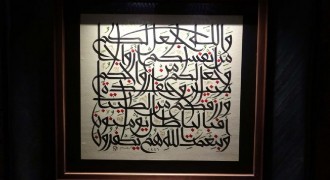 والله جعل لكم
من أنفسكم أزواجا
وجعل لكم من أزواجكم
بنين وحفدة
ورزقكم من الطيبات
أفبالباطل يؤمنون
وبنعمت الله هم يكفرون